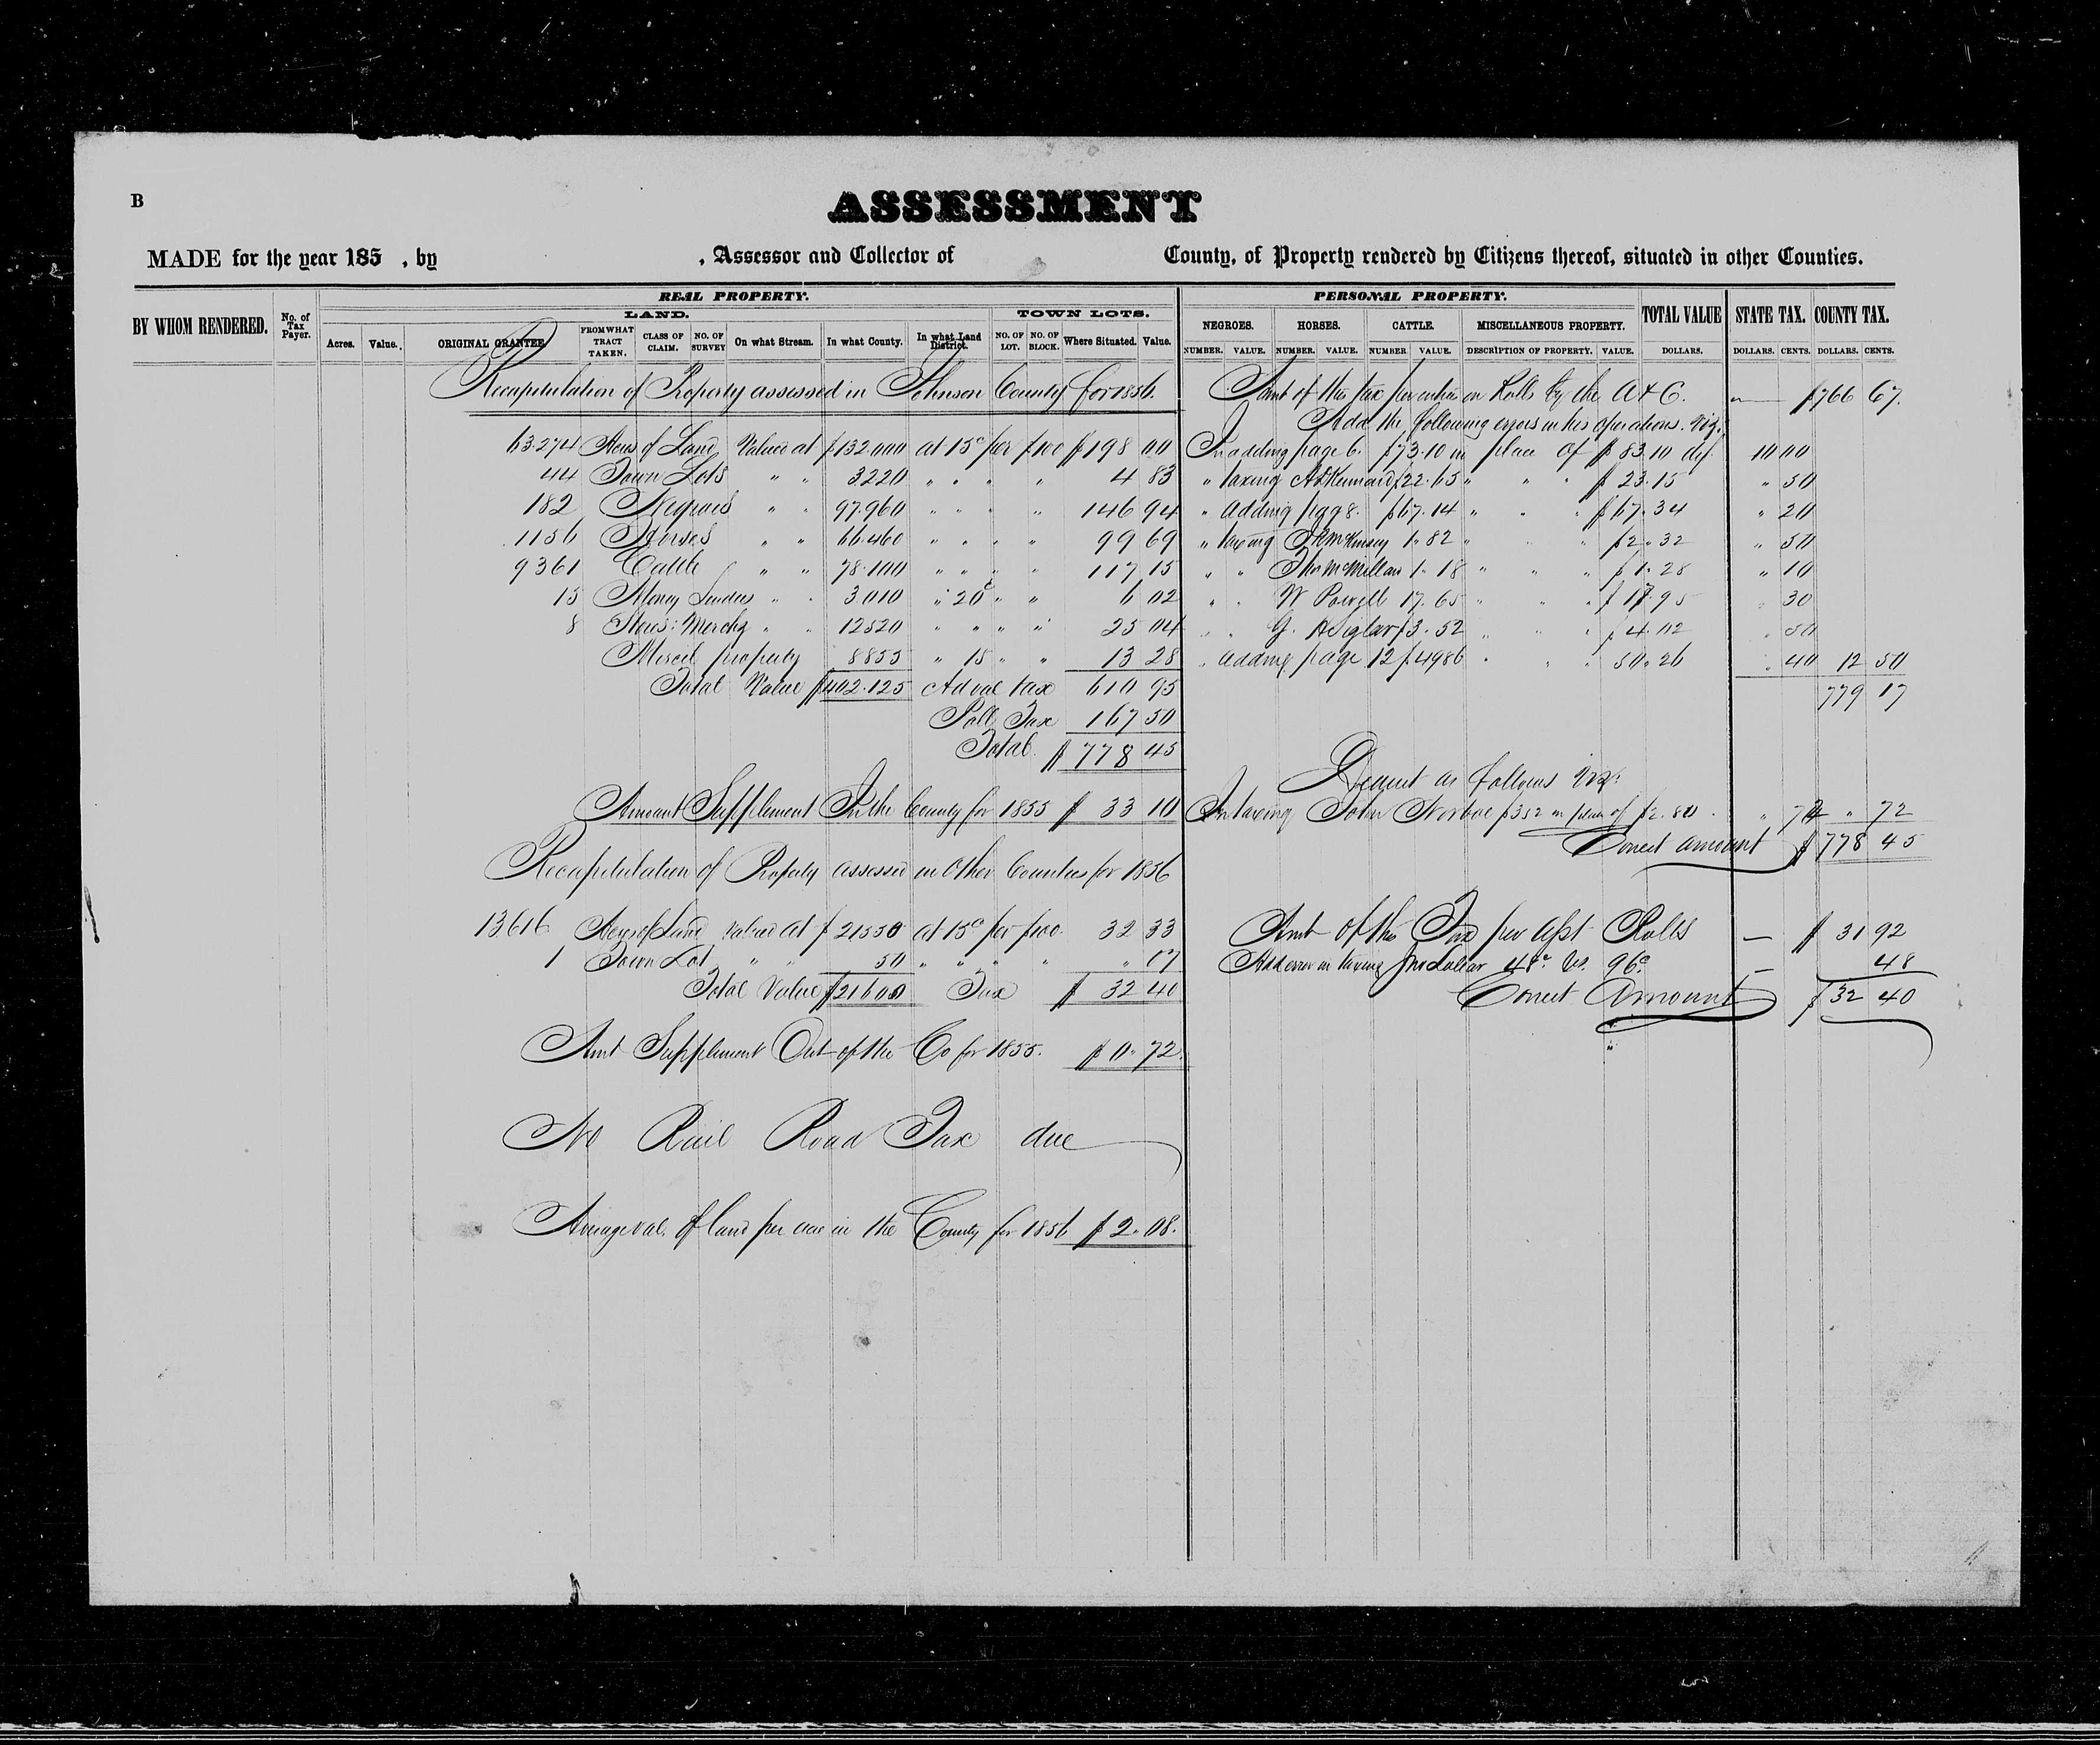 B
ASSESSMENT
MADE for the year 185 , by , Assessor and Collector of County, of Property rendered by Citizens thereof, situated in other Counties.
REAL PROPERTY. PERSONAL PROPERTY.
BY WHOM RENDERED. No. of Tax Payer. LAND. TOWN LOTS. NEGROES. HORSES. CATTLE. MISCELLANEOUS PROPERTY. TOTAL VALUE STATE TAX. COUNTY TAX.
Acres. Value. ORIGINAL GRANTEE. FROM WHAT TRACT TAKEN. CLASS OF CLAIM. NO. OF SURVEY On what Stream. In what County. In what Land District. NO. OF LOT. NO. OF BLOCK. Where Situated. Value. NUMBER. VALUE. NUMBER. VALUE. NUMBER VALUE. DESCRIPTION OF PROPERTY. VALUE. DOLLARS. DOLLARS. CENTS. DOLLARS. CENTS.
Recapitulation of Property assessed in Johnson County for 1856.
63.274 Acres of Land Valued at $132.000 at 15c per $100 $198 00
44 Town Lots " " 3220 " " " " 4 83
182 Negroes " " 97.960 " " " " 146 94
1156 Horses " " 66.460 " " " " 99 69
9361 Cattle " " 78.100 " " " " 117 15
15 Money Lenders " " 3010 " 20c " " 6 02
8 Stores: Merchz " " 12520 " " " " 25 04
Miscel property 8855 " 15 " " 13 28
Total Value $402.125 Ad val tax 610 95
Poll Tax 167 50
Total. $778 45
Amount Supplement In the County for 1855 $ 33 10
Recapitulation of Property assessed in Other Counties for 1856
13616 Acres of Land valued at $21550 at 15c per $100. 32 33
1 Town Lot " " 50 " " " " " 07
Total Value $21600 Tax $ 32 40
Amt Supplement Out of the Co for 1855. $0.72.
No Rail Road Tax due
Average val. of land per acre in the County for 1856 $2.08.
Amt of this tax per entries on Rolls by the A & C. — $766 67.
Add the following errors in his operations. Viz.
In adding page 6. $73.10 in place of $83.10 dif 10 00
" taxing Kennard $22.65 " " " $23.15 " 50
" adding page 8. $67.14 " " " $67.34 " 20
" taxing McKinsey 1.82 " " " $2.32 " 50
" " Thos McMillan 1.18 " " " $1.28 " 10
" " W Powell 17.65 " " " $17.95 " 30
" " G. $3.52 " " " $4.02 " 50
" adding page 12 $49 86 " " " 50.26 " 40 12 50
779 17
Deduct as follows Viz:
In taxing John $3.52 in place of $2.80. " 72 " 72
Correct amount $778 45
Amt of this Tax per Asst Rolls — $ 31 92
Add error in taxing Jno 48c. vs. 96c. — 48
Correct Amount $32 40